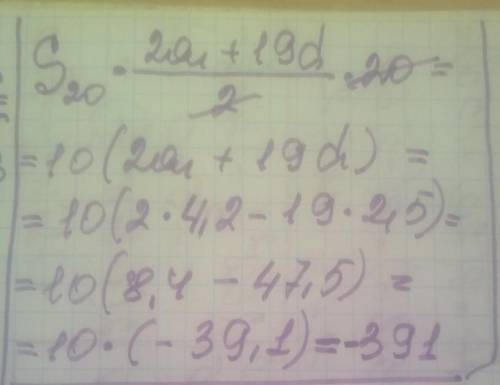 S₂₀ = (2a₁ + 19d)/2 · 20 =
= 10(2a₁ + 19d) =
= 10(2·4,2 - 19·2,5) =
= 10(8,4 - 47,5) =
= 10·(-39,1) = -391